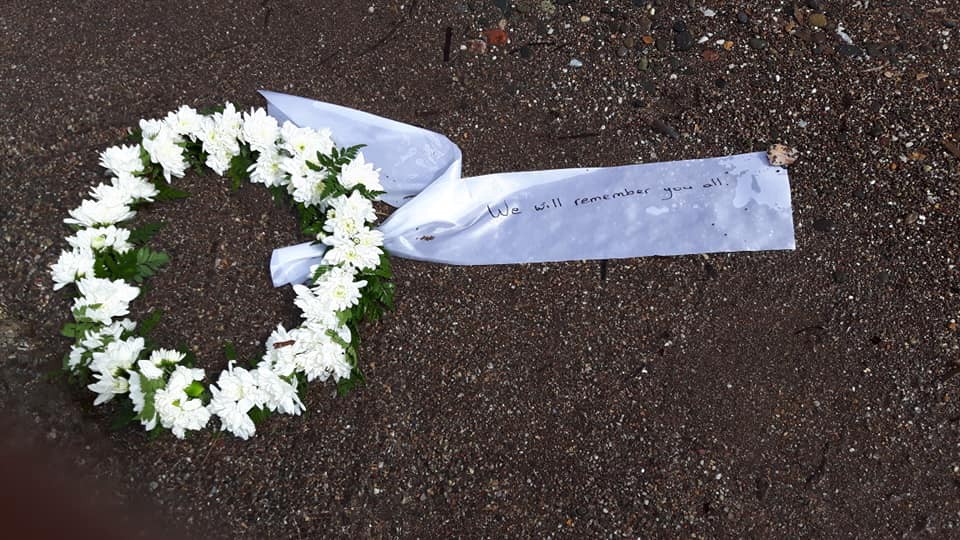 We will remember you all.